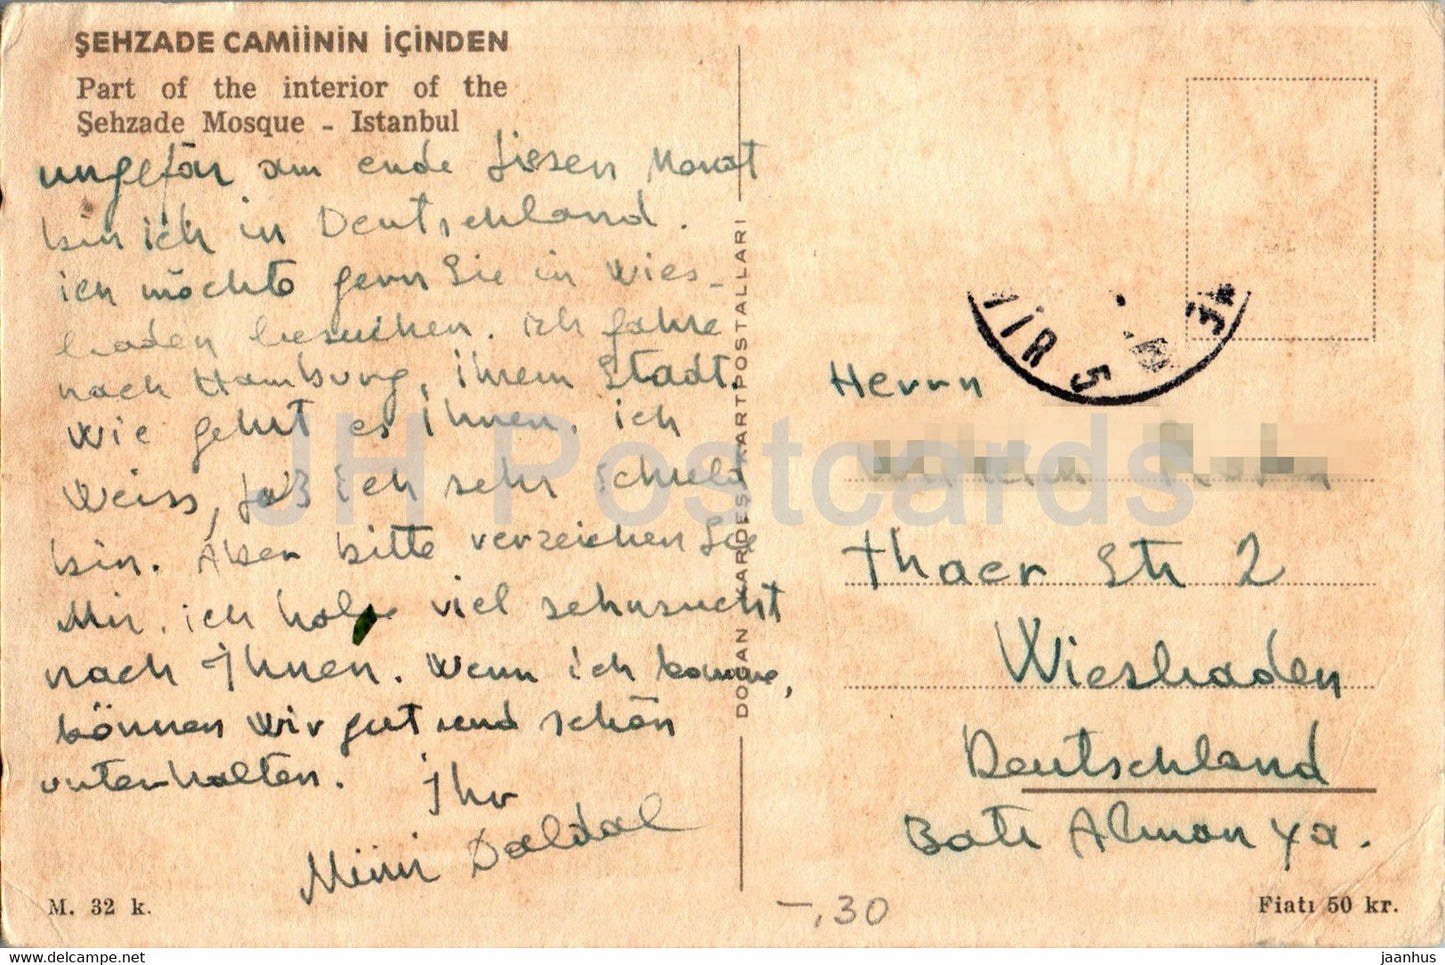 ŞEHZADE CAMİİNİN İÇİNDEN
Part of the interior of the
Şehzade Mosque - Istanbul
ungefär am ende diesen Monat
bin ich in Deutschland.
ich möchte gern Sie in Wies-
baden besuchen. ich fahre
nach Hamburg, ihrem Stadt.
Wie geht es ihnen. ich
Weiss, daß ich sehr Schuld
bin. Aber bitte verzeichen Sie
Mir. ich habe viel sehnsucht
nach Ihnen. Wenn ich komme,
können wir gut und schön
unterhalten. Ihr
Daldal
M. 32 k.
DOĞAN KARDEŞ KARTPOSTALLARI
İR 5
Herrn
Thaer Str 2
Wiesbaden
Deutschland
Batı Almanya.
-,30
Fiatı 50 kr.
JH Postcards
www.hippostcard.com
jaanhus